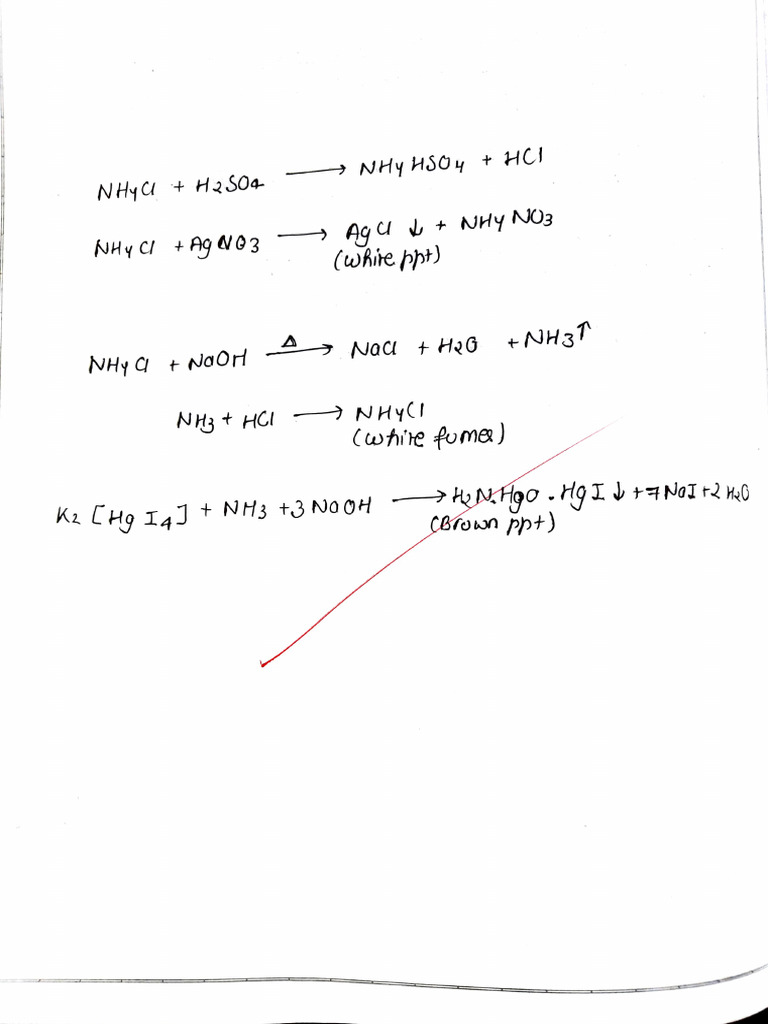 NH4Cl + H2SO4 ⟶ NH4HSO4 + HCl
NH4Cl + AgNO3 ⟶ AgCl ↓ + NH4NO3
(white ppt)
NH4Cl + NaOH —Δ→ NaCl + H2O + NH3↑
NH3 + HCl ⟶ NH4Cl
(white fumes)
K2 [Hg I4] + NH3 + 3 NaOH ⟶ H2N.HgO.HgI ↓ + 7NaI + 2H2O
(Brown ppt)